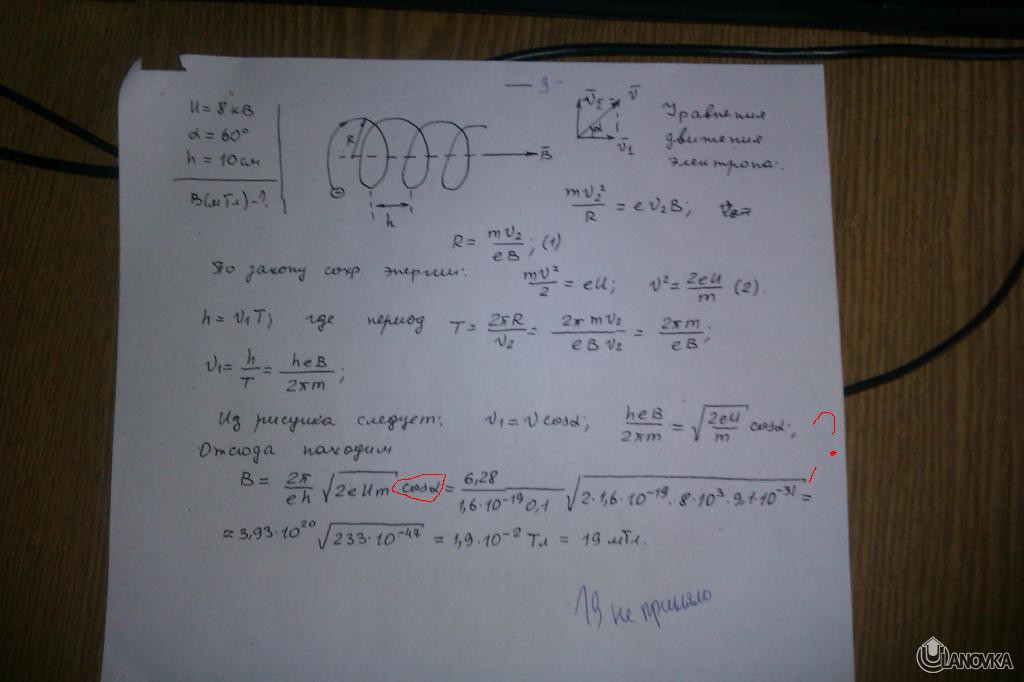 — 3 -
U = 8 кВ
α = 60°
h = 10 см
B(мТл) - ?
R
h
B̄
v̄₂ v̄
α
v̄₁
Уравнения
движения
электрона:
mv₂²/R = ev₂B;
R = mv₂/eB; (1)
По закону сохр. энергии: mv²/2 = eU; v² = 2eU/m (2).
h = v₁T; где период T = 2πR/v₂ = 2πmv₂/eBv₂ = 2πm/eB;
v₁ = h/T = heB/2πm;
Из рисунка следует: v₁ = v cosα; heB/2πm = √(2eU/m) cosα; ?
Отсюда находим
B = 2π/eh √(2eUm) cosα = 6,28/1,6·10⁻¹⁹ 0,1 √(2·1,6·10⁻¹⁹·8·10³·9,1·10⁻³¹) =
= 3,93·10²⁰ √(233·10⁻⁴⁷) = 1,9·10⁻² Тл = 19 мТл.
19 не приняло
ULANOVKA